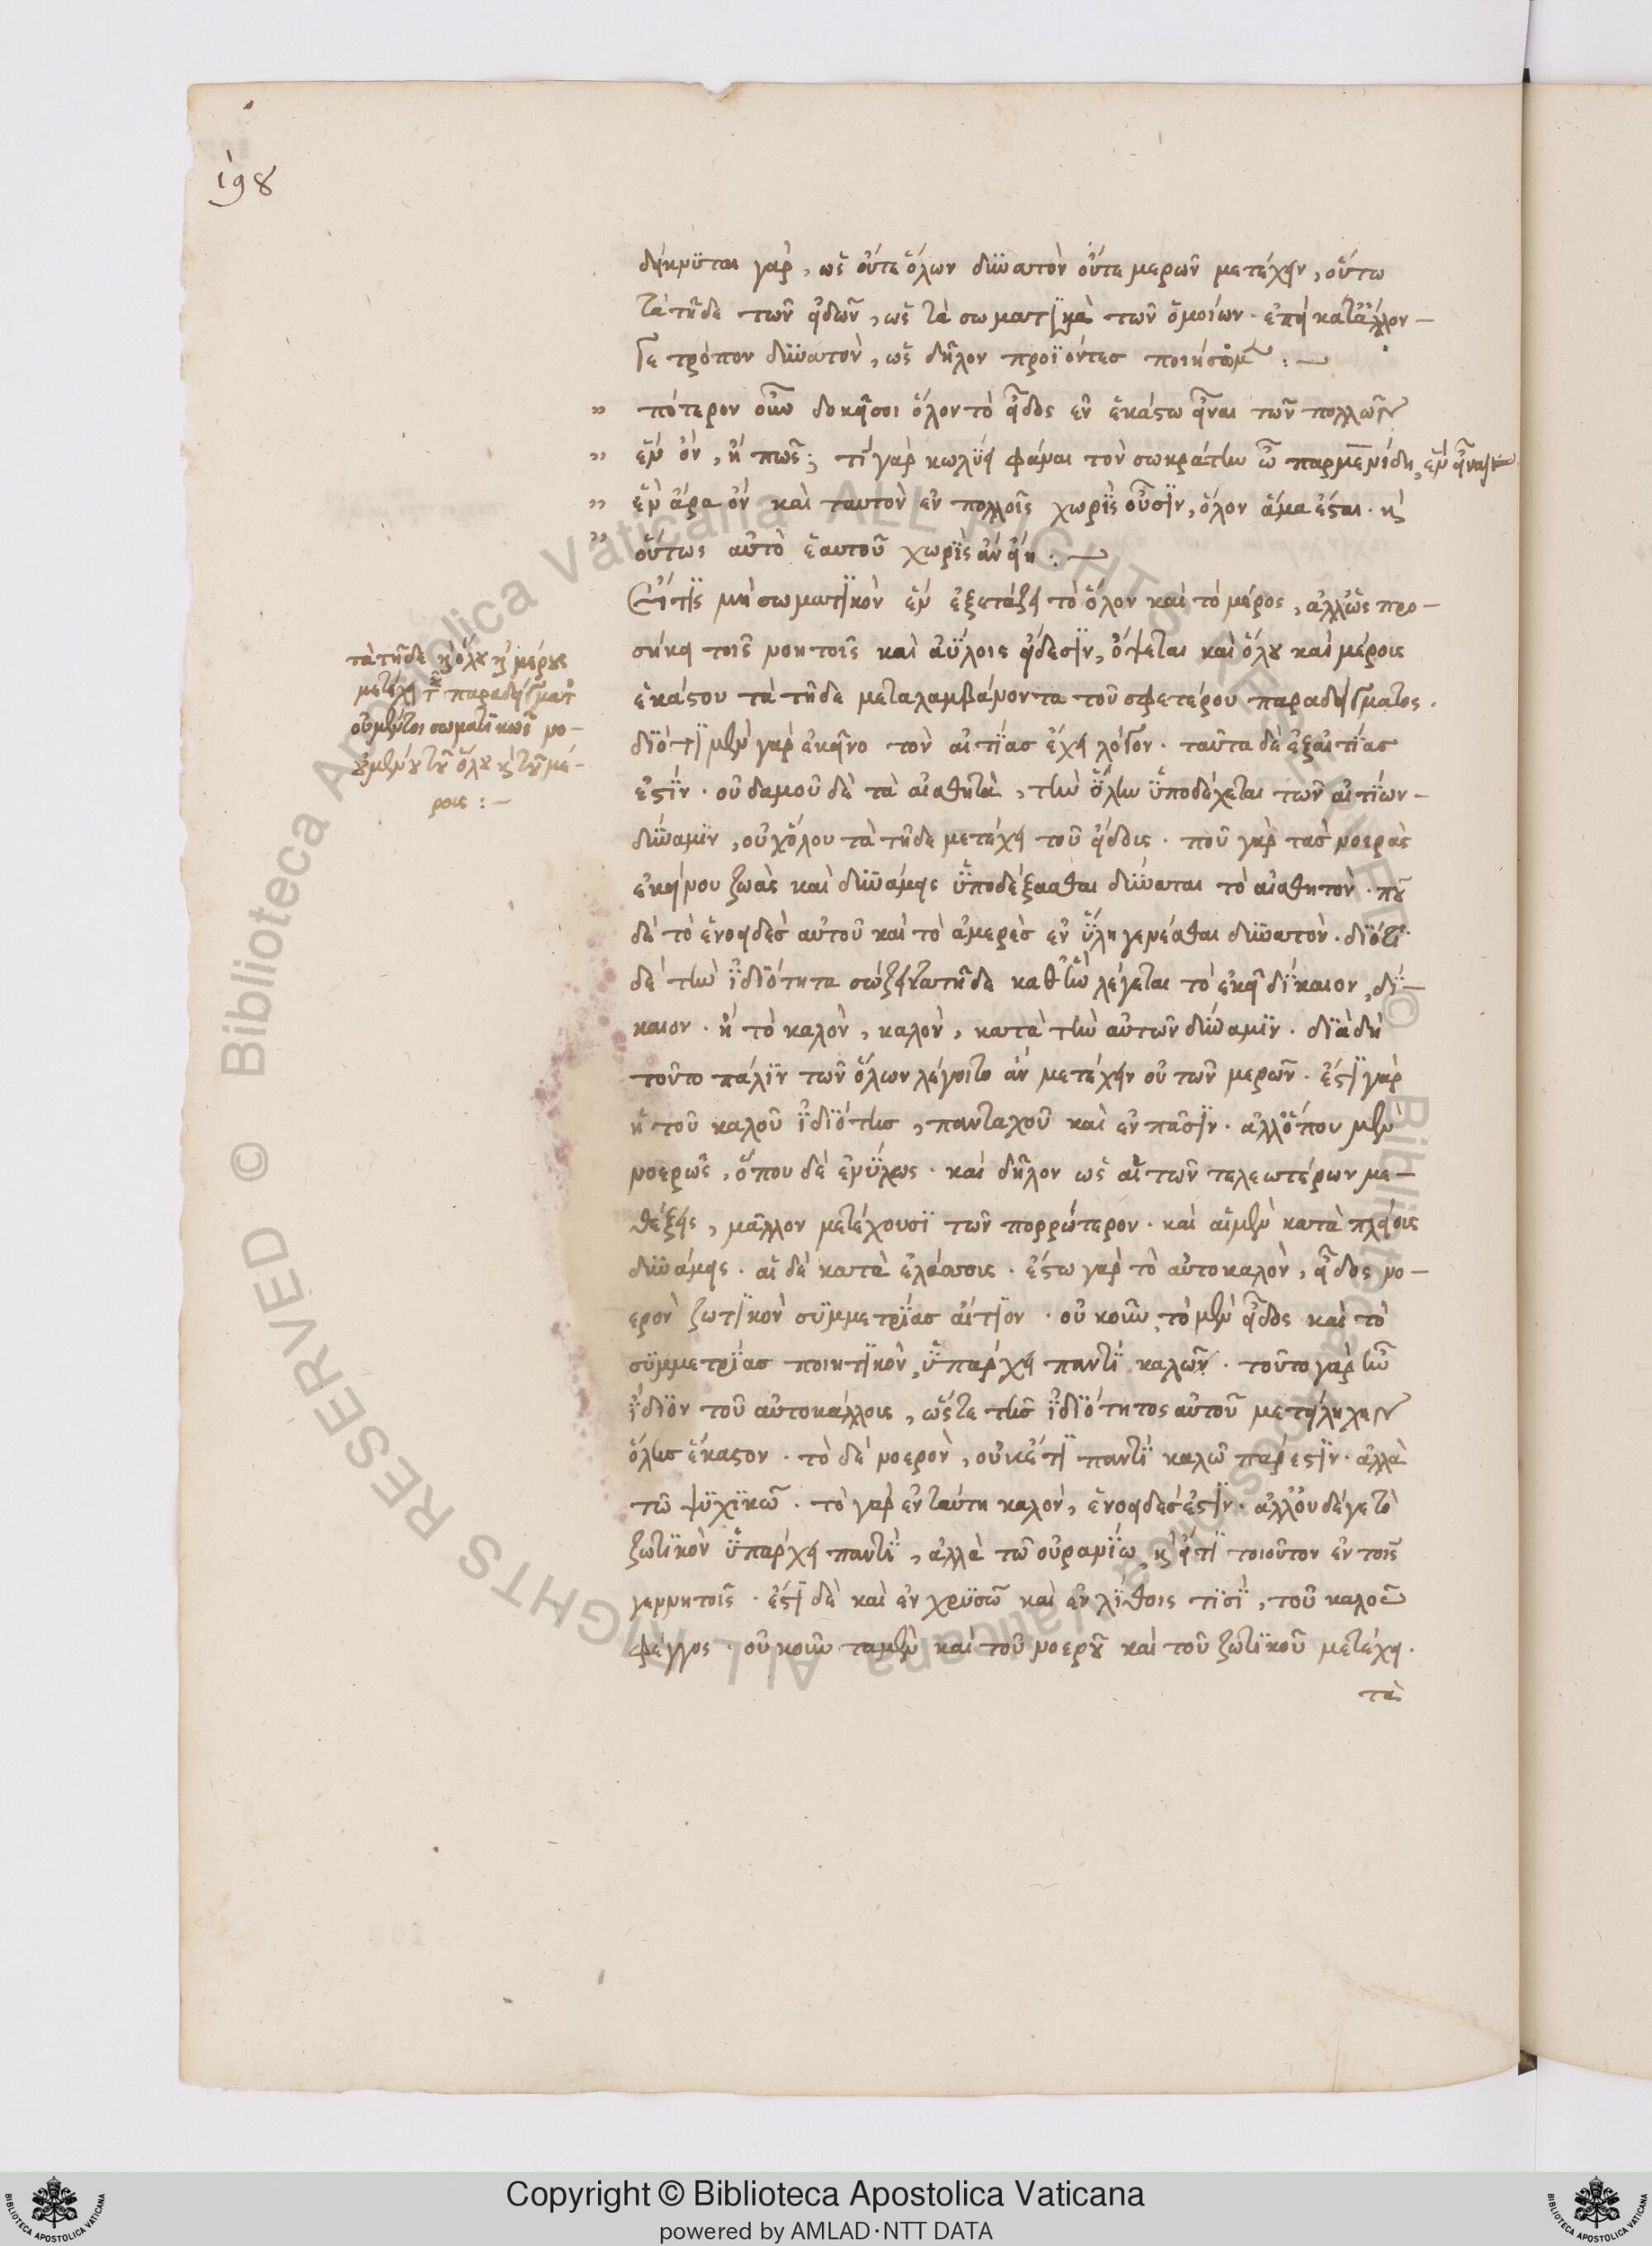 198
δείκνυται γὰρ, ὡς οὔτε ὅλων δυνατὸν οὔτε μερῶν μετέχειν, οὕτω
τὰ τῆδε τῶν εἰδῶν, ὡς τὰ σωματικὰ τῶν ὁμοίων. ἐπεὶ κατ' ἄλλον
γε τρόπον δυνατὸν, ὡς δῆλον προϊόντες ποιήσομεν :—
" πότερον οὖν δοκεῖ σοι ὅλον τὸ εἶδος ἐν ἑκάστω εἶναι τῶν πολλῶν
" ἓν ὂν, ἢ πῶς; τί γὰρ κωλύει φάναι τὸν σωκράτην ὦ παρμενίδη, ἓν εἶναι
" ἓν ἄρα ὂν καὶ ταυτὸν ἐν πολλοῖς χωρὶς οὖσιν, ὅλον ἅμα ἔσται. κ
" οὕτως αὐτὸ ἑαυτοῦ χωρὶς ἂν εἴη :—
Εἴ τις μὴ σωματικὸν ἓν ἐξετάζει τὸ ὅλον καὶ τὸ μέρος, ἀλλ' ὡς προ-
σήκει τοῖς νοητοῖς καὶ ἀΰλοις εἴδεσιν, ὄψεται καὶ ὅλου καὶ μέρους
ἑκάστου τὰ τῆδε μεταλαμβάνοντα τοῦ σφετέρου παραδείγματος.
διότι μὲν γὰρ ἐκεῖνο τὸν αἰτίας ἔχει λόγον. ταῦτα δὲ ἐξ αἰτίας
ἐστίν. οὐδαμοῦ δὲ τὰ αἰσθητὰ, τὴν ὅλην ὑποδέχεται τῶν αἰτίων
δύναμιν, οὐχ ὅλου τὰ τῆδε μετέχει τοῦ εἴδους. ποῦ γὰρ τὰς νοερὰς
ἐκείνου ζωὰς καὶ δυνάμεις ὑποδέξασθαι δύναται τὸ αἰσθητόν. ποῦ
δὲ τὸ ἑνοειδὲς αὐτοῦ καὶ τὸ ἀμερὲς ἐν ὕλη γενέσθαι δυνατόν. διότι
δὲ τὴν ἰδιότητα σώζει τὰ τῆδε καθ' ἣν λέγεται τὸ ἐκεῖ δίκαιον, δί-
καιον. ἢ τὸ καλὸν, καλὸν, κατὰ τὴν αὐτῶν δύναμιν. διὰ δὴ
τοῦτο πάλιν τῶν ὅλων λέγοιτο ἂν μετέχειν οὐ τῶν μερῶν. ἔστι γὰρ
ἡ τοῦ καλοῦ ἰδιότης, πανταχοῦ καὶ ἐν πᾶσιν. ἀλλ' ὅπου μὲν
νοερῶς, ὅπου δὲ ἐνύλως. καὶ δῆλον ὡς αἱ τῶν τελεωτέρων με-
θέξεις, μᾶλλον μετέχουσι τῶν πορρώτερον. καὶ αἱ μὲν κατὰ πλείους
δυνάμεις. αἱ δὲ κατὰ ἐλάσσους. ἔστω γὰρ τὸ αὐτοκαλὸν, εἶδος νο-
ερὸν ζωτικὸν συμμετρίας αἴτιον. οὐκοῦν, τὸ μὲν εἶδος καὶ τὸ
συμμετρίας ποιητικὸν, ὑπάρχει παντὶ καλῶν. τοῦτο γὰρ ἦν
ἴδιον τοῦ αὐτοκάλλους, ὥστε τῆς ἰδιότητος αὐτοῦ μετείληχεν
ὅλης ἕκαστον. τὸ δὲ νοερὸν, οὐκέτι παντὶ καλῶ πάρεστιν. ἀλλὰ
τῶ ψυχικῶ. τὸ γὰρ ἐν ταύτη καλὸν, ἑνοειδές ἐστιν. ἀλλ' οὐδέ γε τὸ
ζωτικὸν ὑπάρχει παντὶ, ἀλλὰ τῶ οὐρανίω, κ εἴ τι τοιοῦτον ἐν τοῖς
γεννητοῖς. ἔστι δὲ καὶ ἐν χρυσῶ καὶ ἐν λίθοις τισὶ, τοῦ καλοῦ
φέγγος. οὐκοῦν τὰ μὲν καὶ τοῦ νοεροῦ καὶ τοῦ ζωτικοῦ μετέχει.
τὰ
τὰ τῆδε κ ὅλου κ μέρους
μετέχει τ παραδείγματ
οὐ μέντοι σωματικῶς νο-
ουμένου τοῦ ὅλου κ τοῦ μέ-
ρους :—
Copyright © Biblioteca Apostolica Vaticana
powered by AMLAD·NTT DATA
© Biblioteca Apostolica Vaticana ALL RIGHTS RESERVED © Biblioteca Apostolica Vaticana ALL RIGHTS RESERVED